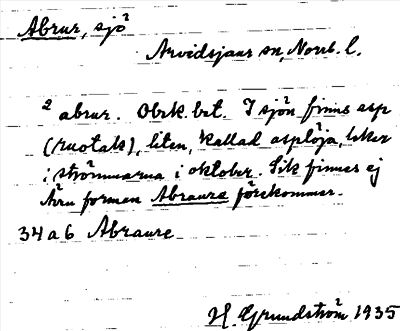 Abrur, sjö
Arvidsjaur sn, Norrb. l.
² abrur. Obrk. bet. I sjön finns asp
(ruotak), liten, kallad asplöja, leker
i strömmarna i oktober. Sik finnes ej
Även formen Abraure förekommer.
34 a 6 Abraure
H. Grundström 1935